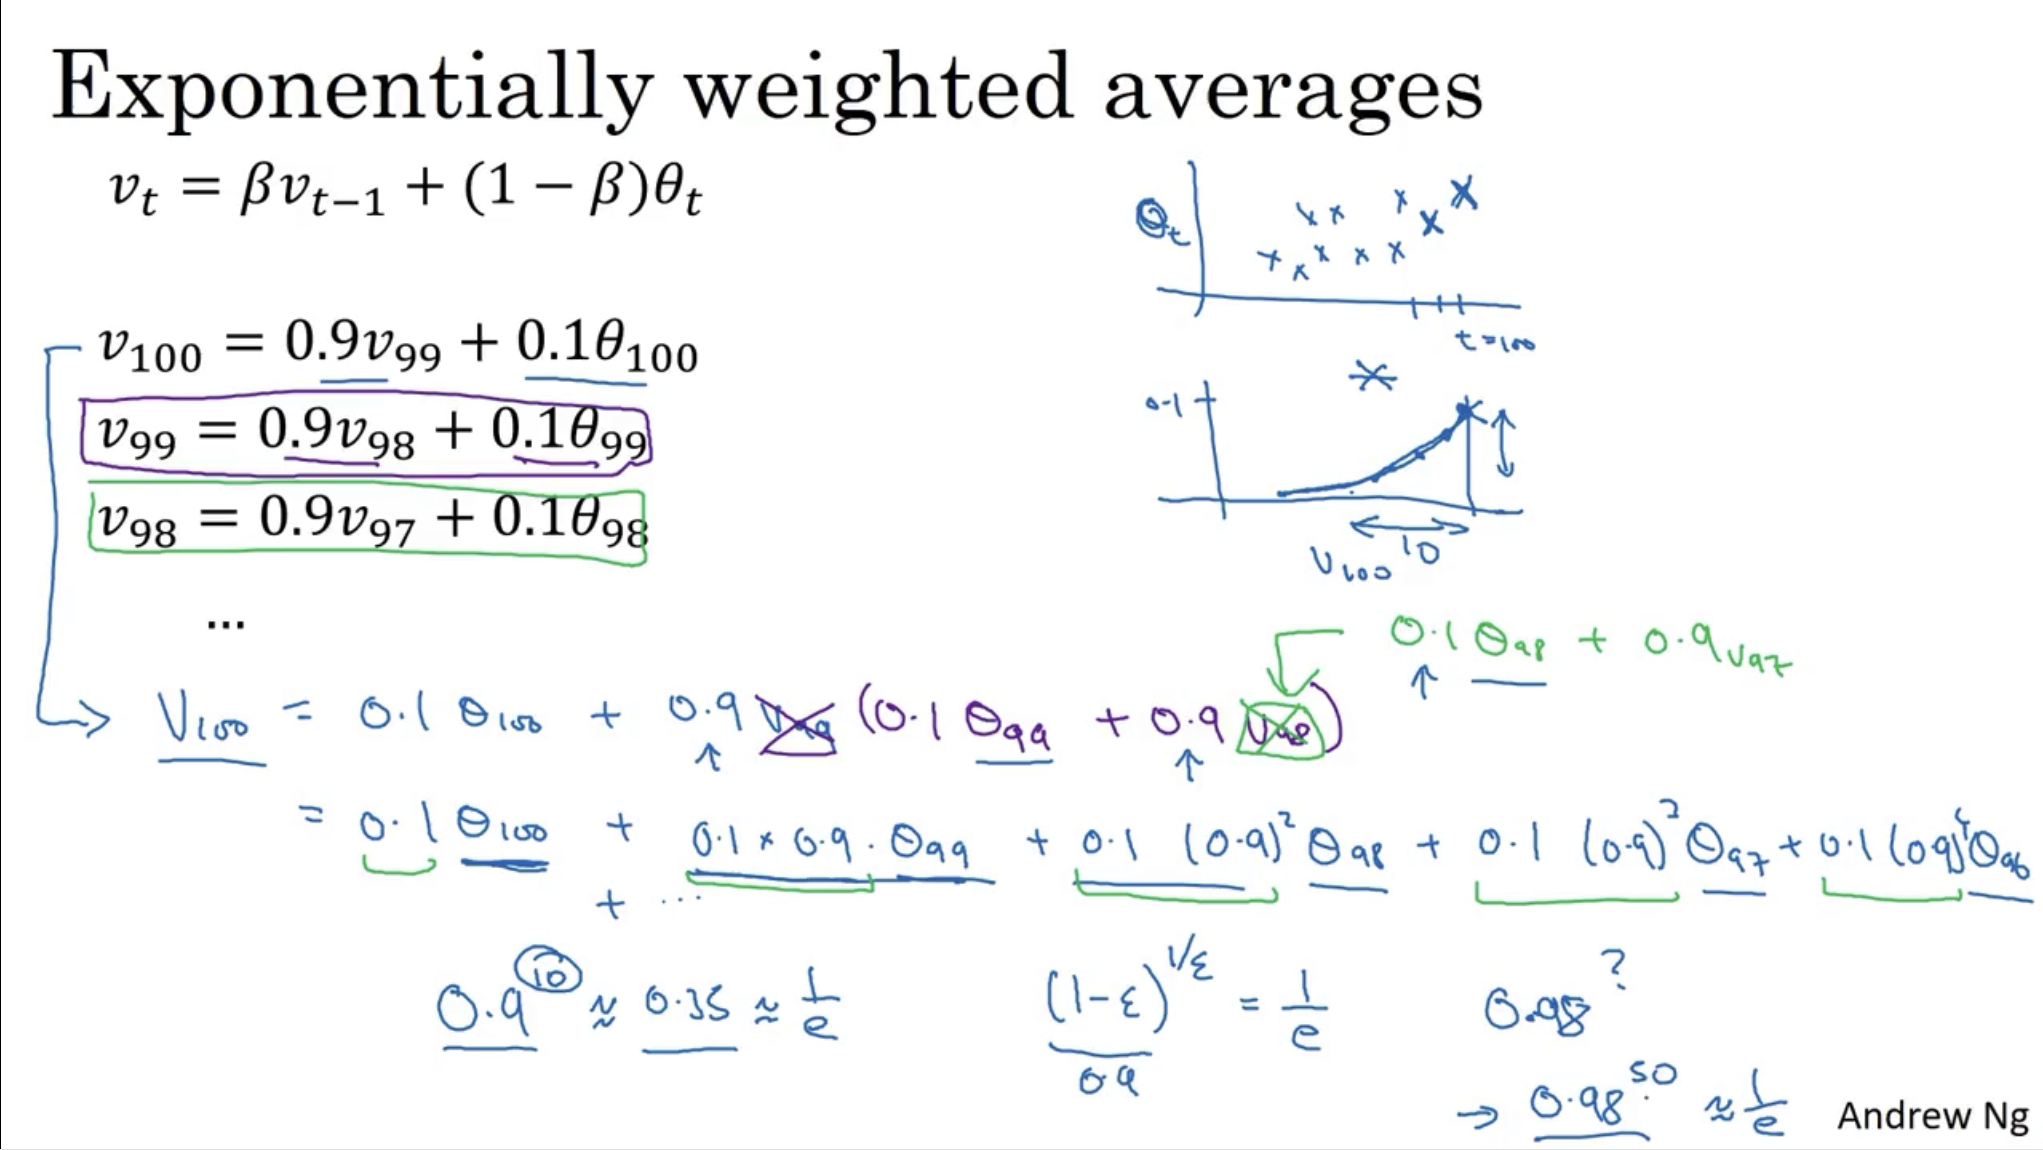 Exponentially weighted averages
v_t = βv_{t−1} + (1 − β)θ_t
θ_t
t=100
v_100 = 0.9v_99 + 0.1θ_100
v_99 = 0.9v_98 + 0.1θ_99
v_98 = 0.9v_97 + 0.1θ_98
...
0.1
10
V_100
0.1 θ_98 + 0.9 v_97
V_100 = 0.1 θ_100 + 0.9 v_99 (0.1 θ_99 + 0.9 v_98)
= 0.1 θ_100 + 0.1 × 0.9 · θ_99 + 0.1 (0.9)^2 θ_98 + 0.1 (0.9)^3 θ_97 + 0.1 (0.9)^4 θ_96
+ ...
0.9^10 ≈ 0.35 ≈ 1/e
(1-ε)^{1/ε} = 1/e
0.9
0.98^?
→ 0.98^50 ≈ 1/e
Andrew Ng